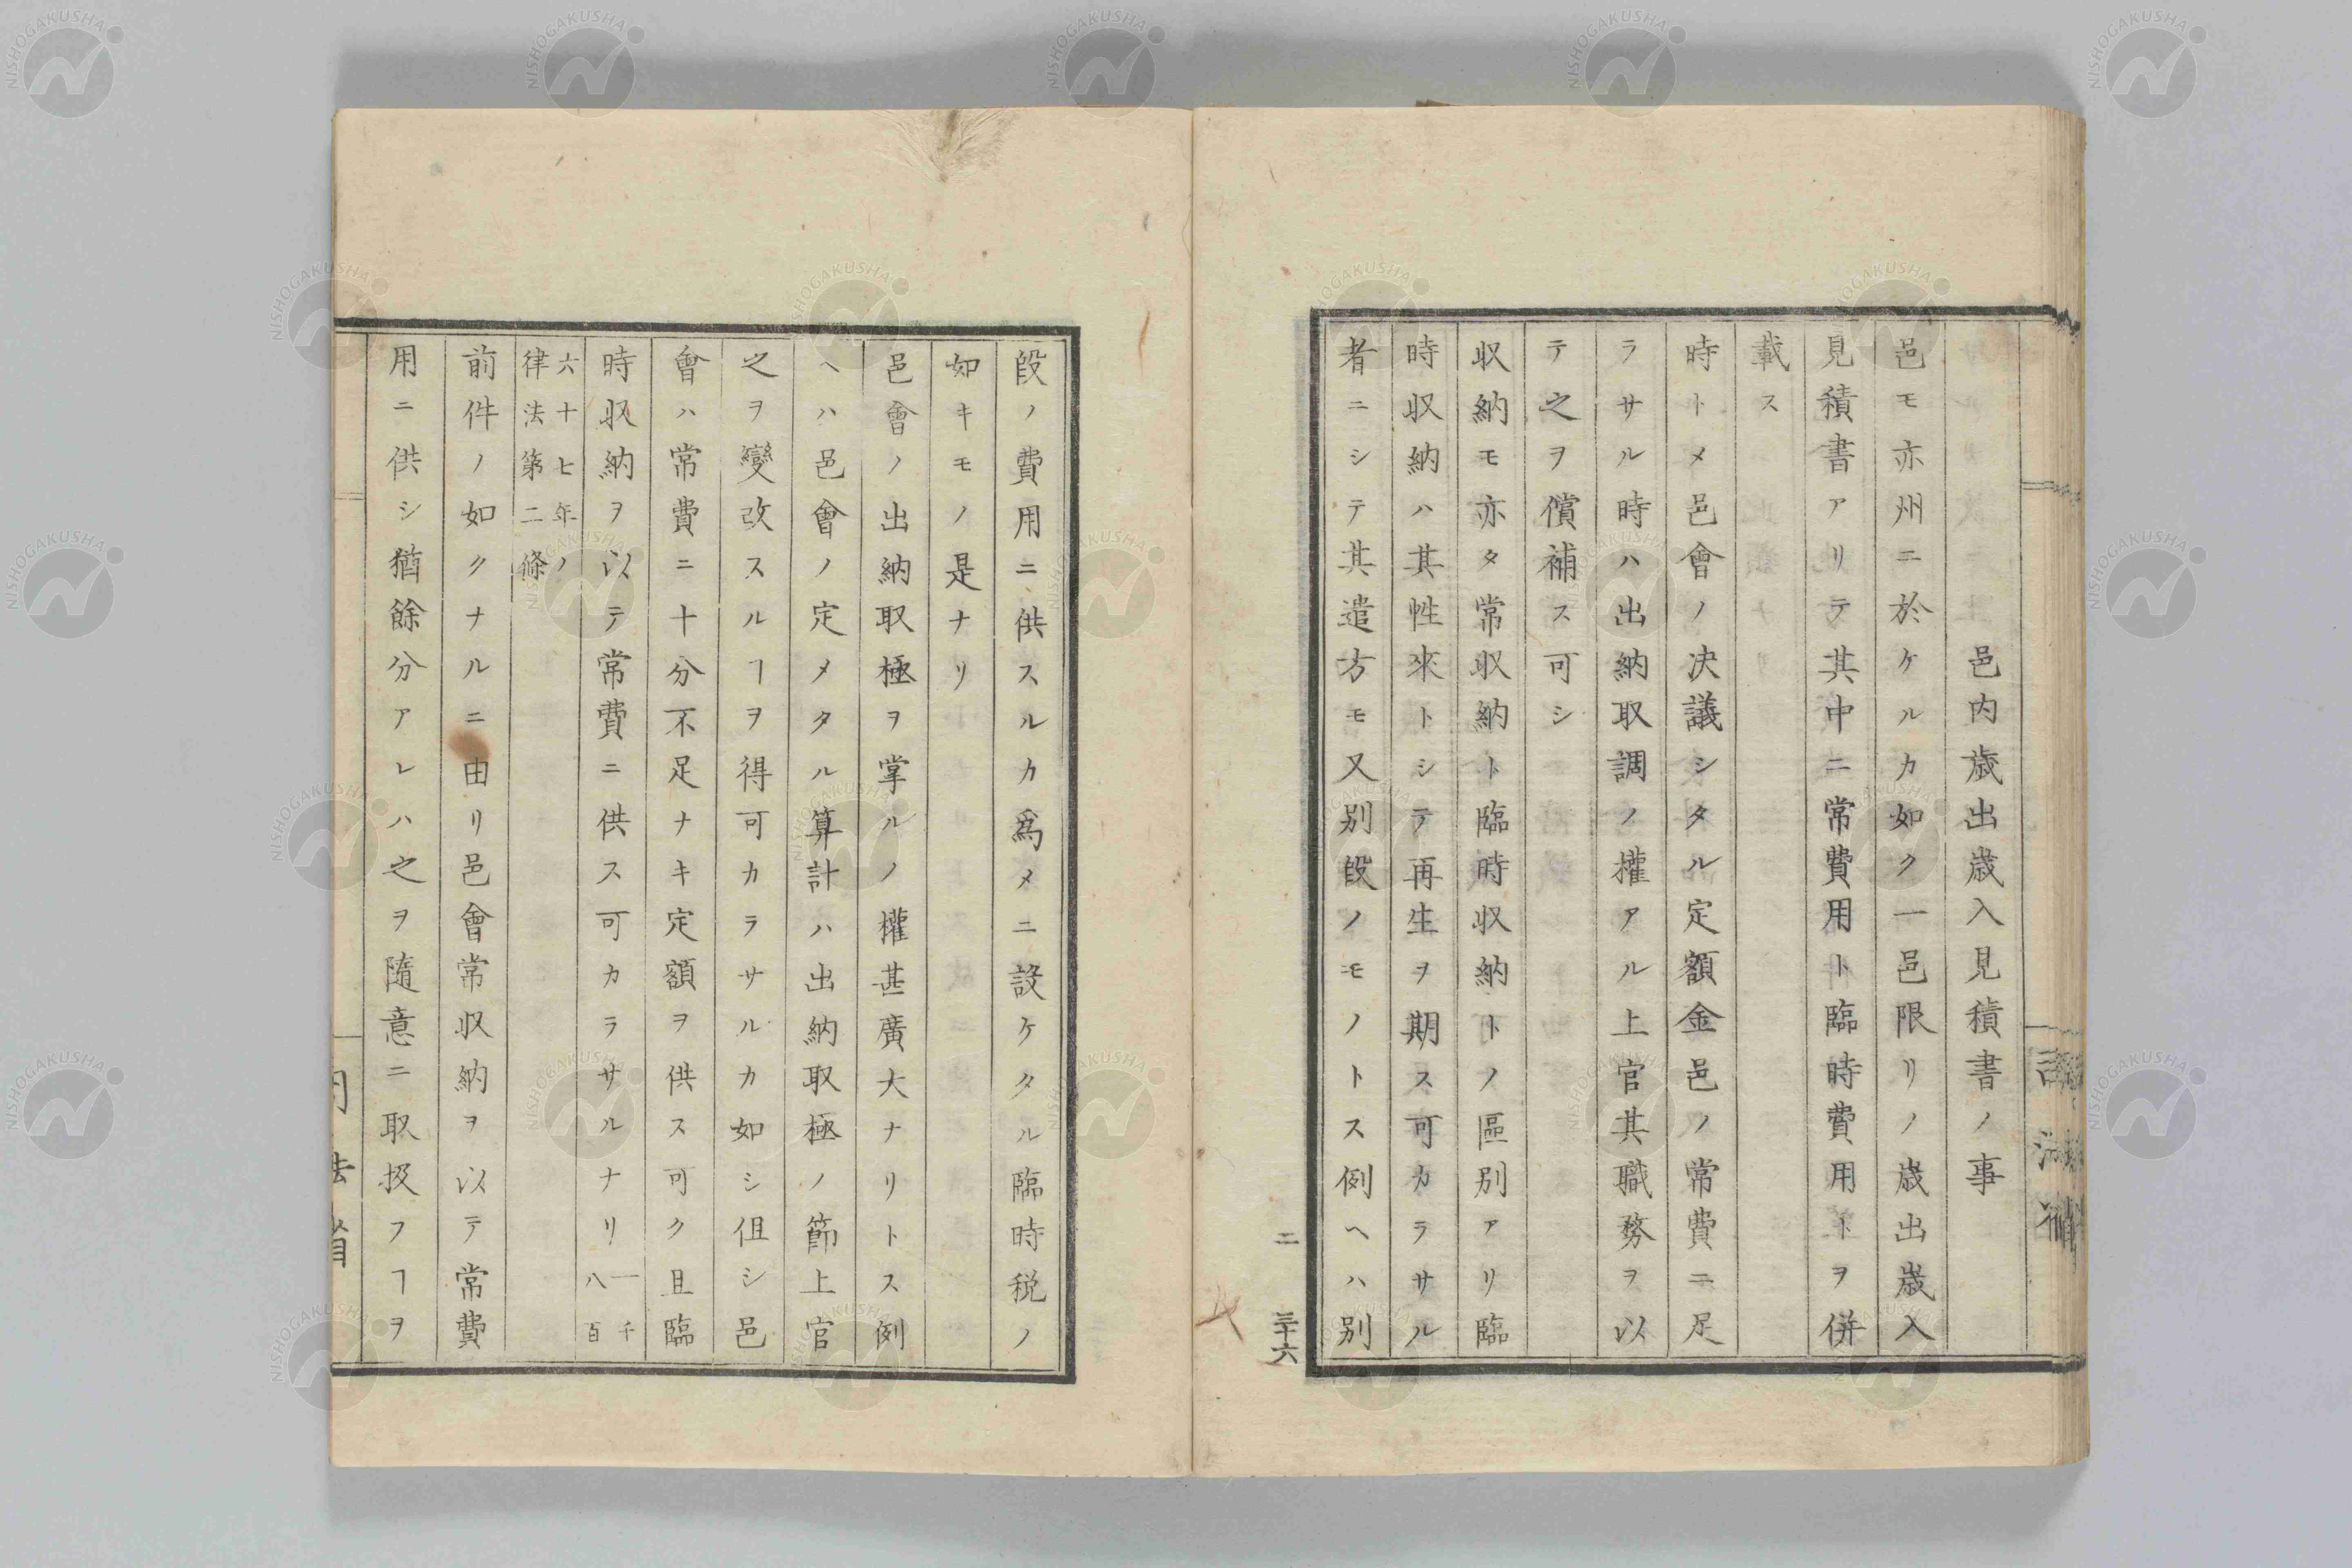 邑内歳出歳入見積書ノ事
邑モ亦州ニ於ケルカ如ク一邑限リノ歳出歳入
見積書アリテ其中ニ常費用ト臨時費用トヲ併
載ス
時トメ邑會ノ决議シタル定額金邑ノ常費ニ足
ラサル時ハ出納取調ノ權アル上官其職務ヲ以
テ之ヲ償補ス可シ
収納モ亦タ常収納ト臨時収納トノ區別アリ臨
時収納ハ其性來トシテ再生ヲ期ス可カラサル
者ニシテ其遣方モ又别段ノモノトス例ヘハ别
二
三十六
段ノ費用ニ供スルカ爲メニ設ケタル臨時税ノ
如キモノ是ナリ
邑會ノ出納取極ヲ掌ルノ權甚廣大ナリトス例
ヘハ邑會ノ定メタル算計ハ出納取極ノ節上官
之ヲ變改スルヿヲ得可カラサルカ如シ但シ邑
會ハ常費ニ十分不足ナキ定額ヲ供ス可ク且臨
時収納ヲ以テ常費ニ供ス可カラサルナリ一千八百
六十七年ノ律法第二條
前件ノ如クナルニ由リ邑會常収納ヲ以テ常費
用ニ供シ猶餘分アレハ之ヲ隨意ニ取扱フヿヲ
NISHOGAKUSHA